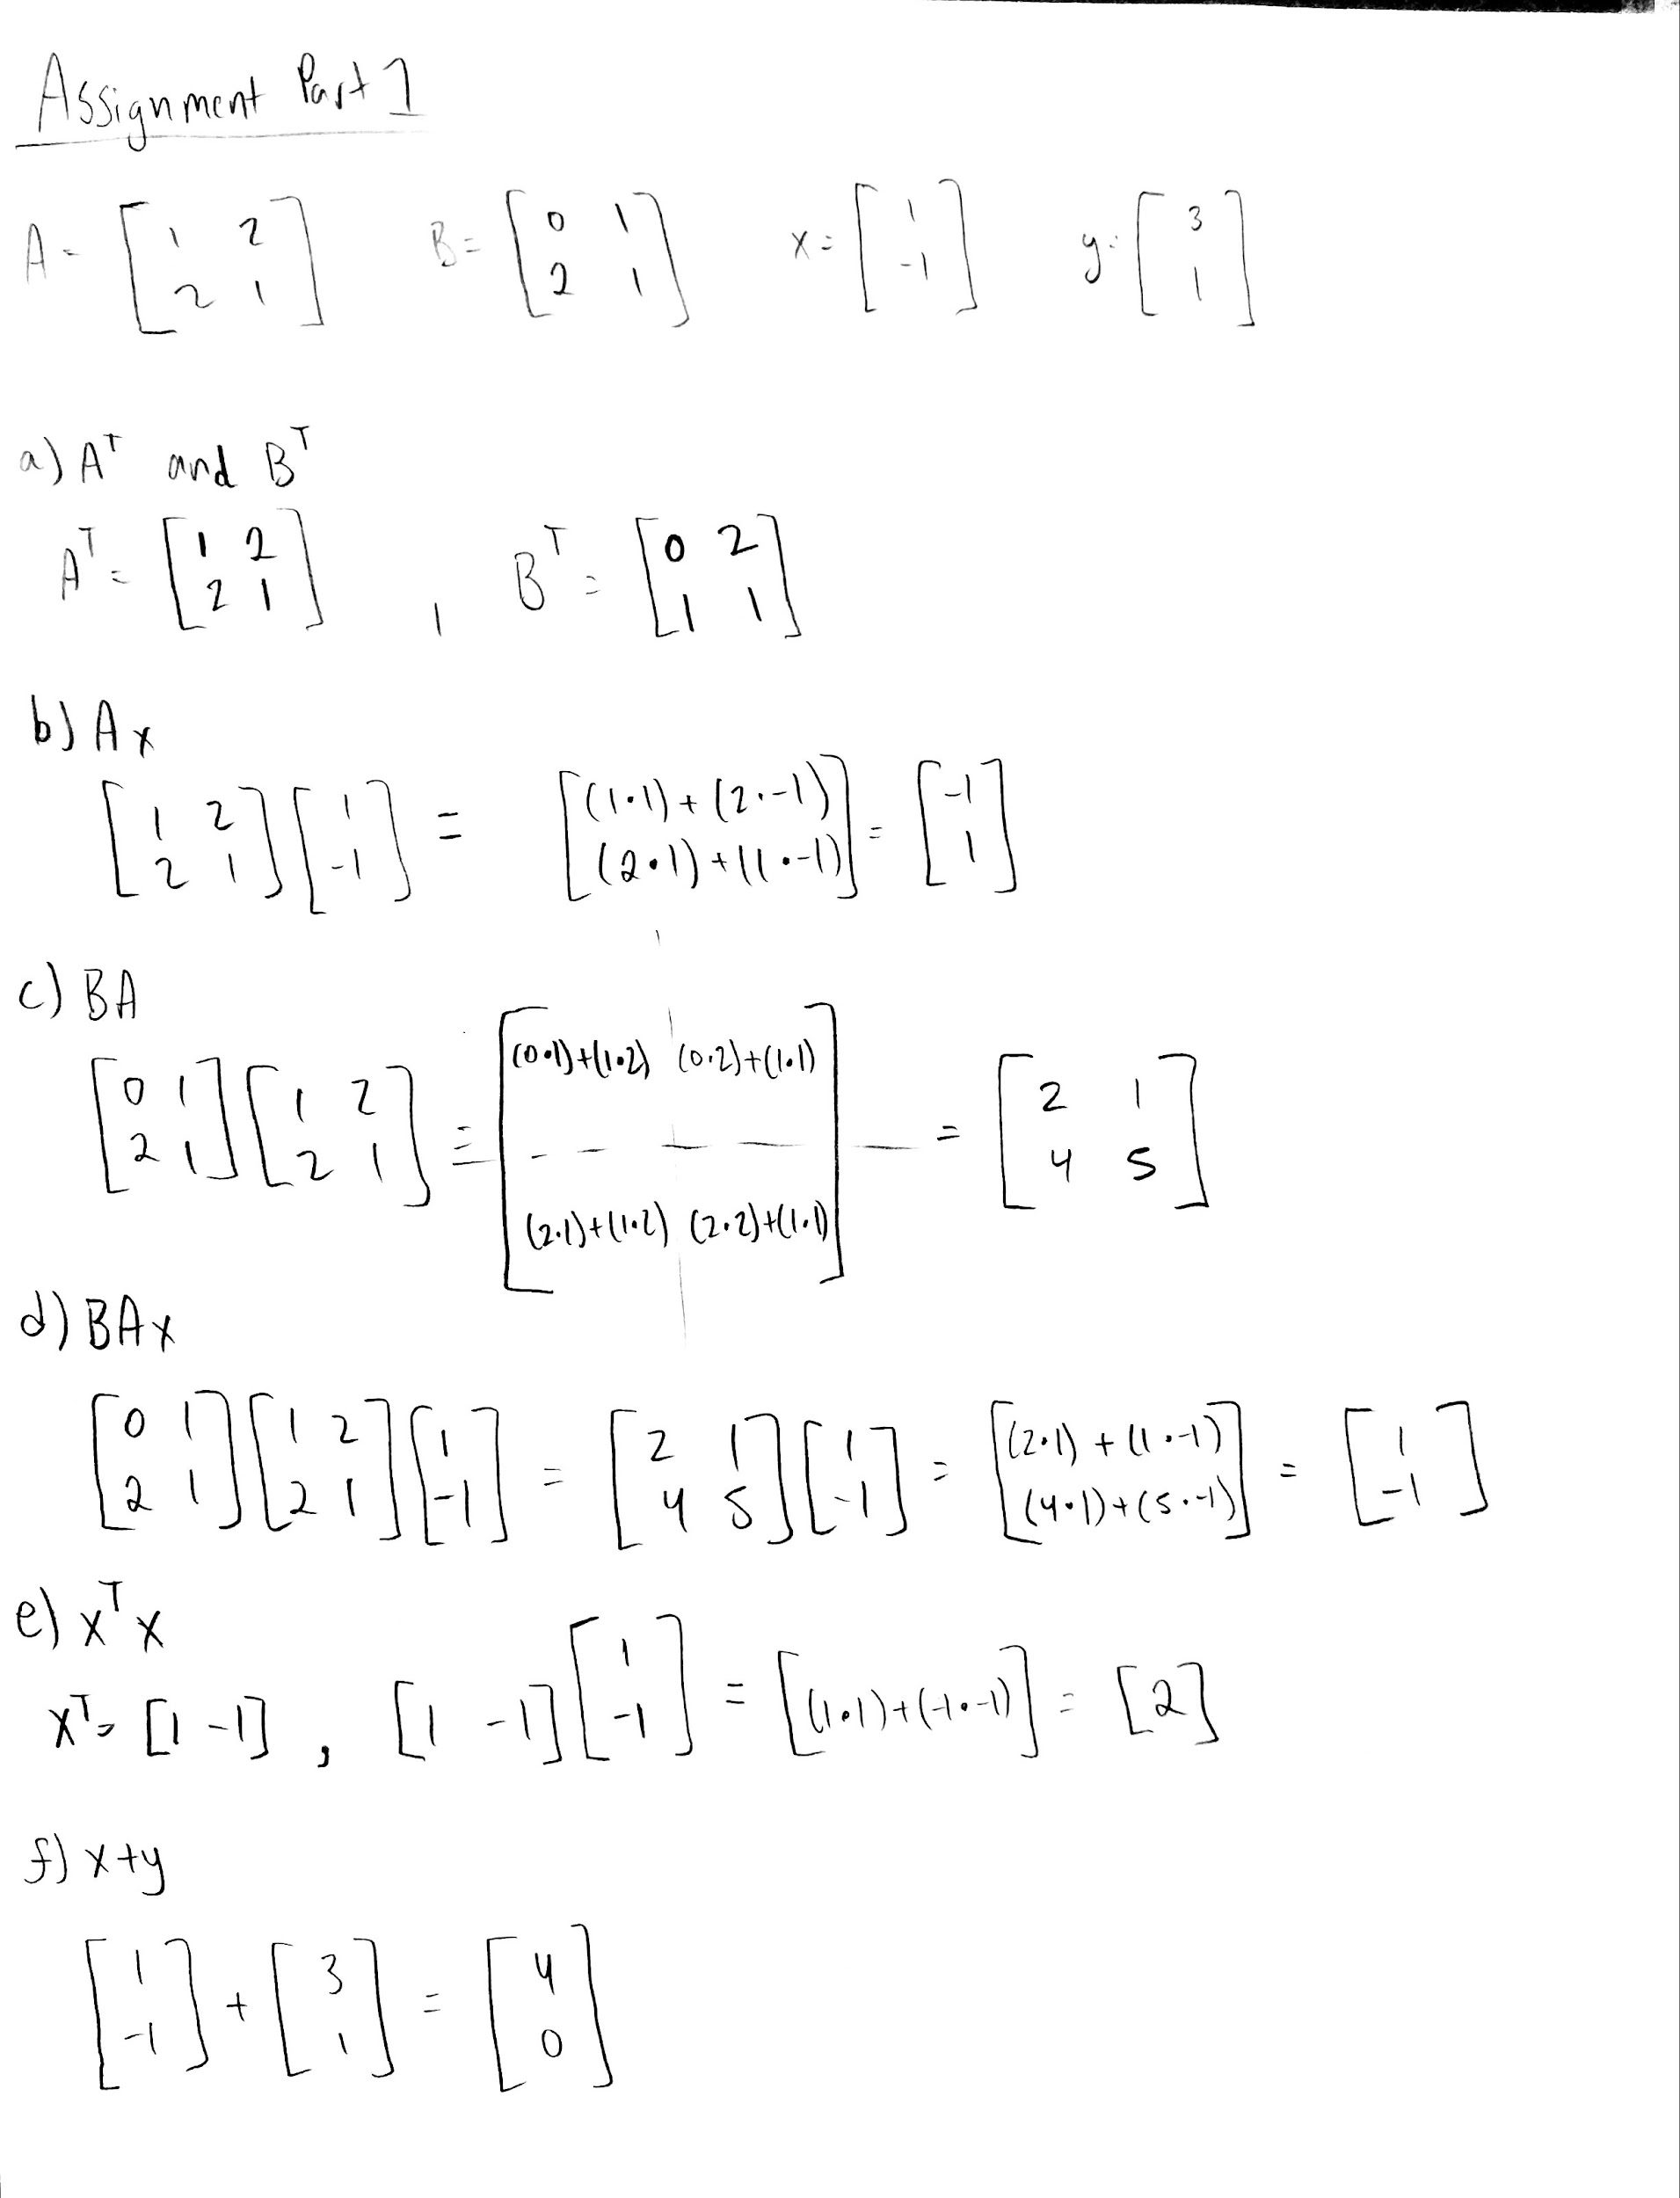 Assignment Part 1
A = [1 2; 2 1] B = [0 1; 2 1] x = [1; -1] y = [3; 1]
a) Aᵀ and Bᵀ
Aᵀ = [1 2; 2 1] , Bᵀ = [0 2; 1 1]
b) Ax
[1 2; 2 1][1; -1] = [(1·1)+(2·-1); (2·1)+(1·-1)] = [-1; 1]
c) BA
[0 1; 2 1][1 2; 2 1] = [(0·1)+(1·2) (0·2)+(1·1); (2·1)+(1·2) (2·2)+(1·1)] = [2 1; 4 5]
d) BAx
[0 1; 2 1][1 2; 2 1][1; -1] = [2 1; 4 5][1; -1] = [(2·1)+(1·-1); (4·1)+(5·-1)] = [1; -1]
e) xᵀx
xᵀ = [1 -1] , [1 -1][1; -1] = [(1·1)+(-1·-1)] = [2]
f) x+y
[1; -1] + [3; 1] = [4; 0]